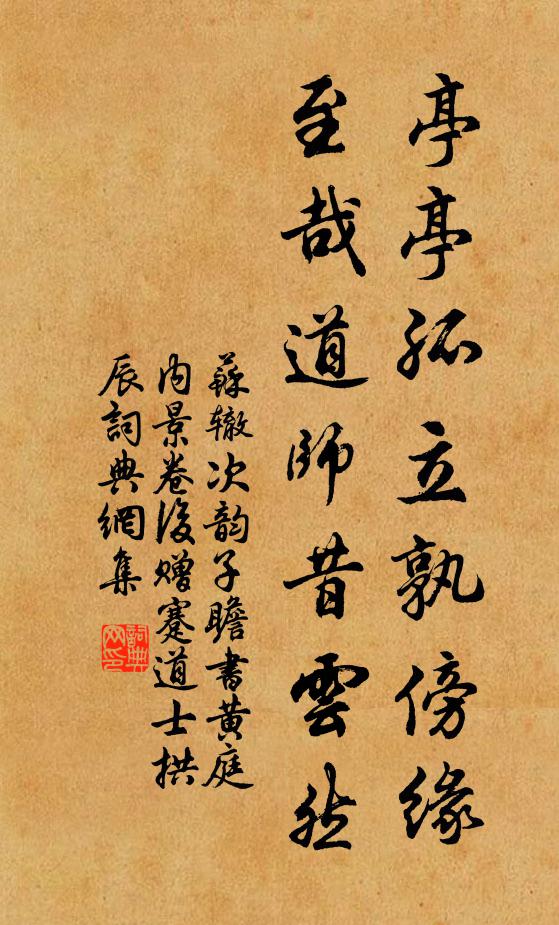 亭亭孤立孰傍緣
至哉道師昔雲然
蘇轍次韵子瞻書黄庭
内景卷後贈蹇道士拱
辰詞典網集
詞典
网印